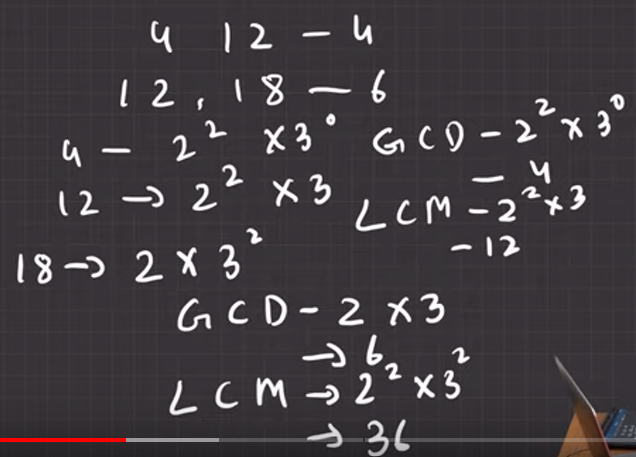 4 12 – 4
12, 18 – 6
4 – 2² × 3⁰
GCD – 2² × 3⁰
– 4
12 → 2² × 3
LCM – 2² × 3
– 12
18 → 2 × 3²
GCD – 2 × 3
→ 6
LCM → 2² × 3²
→ 36